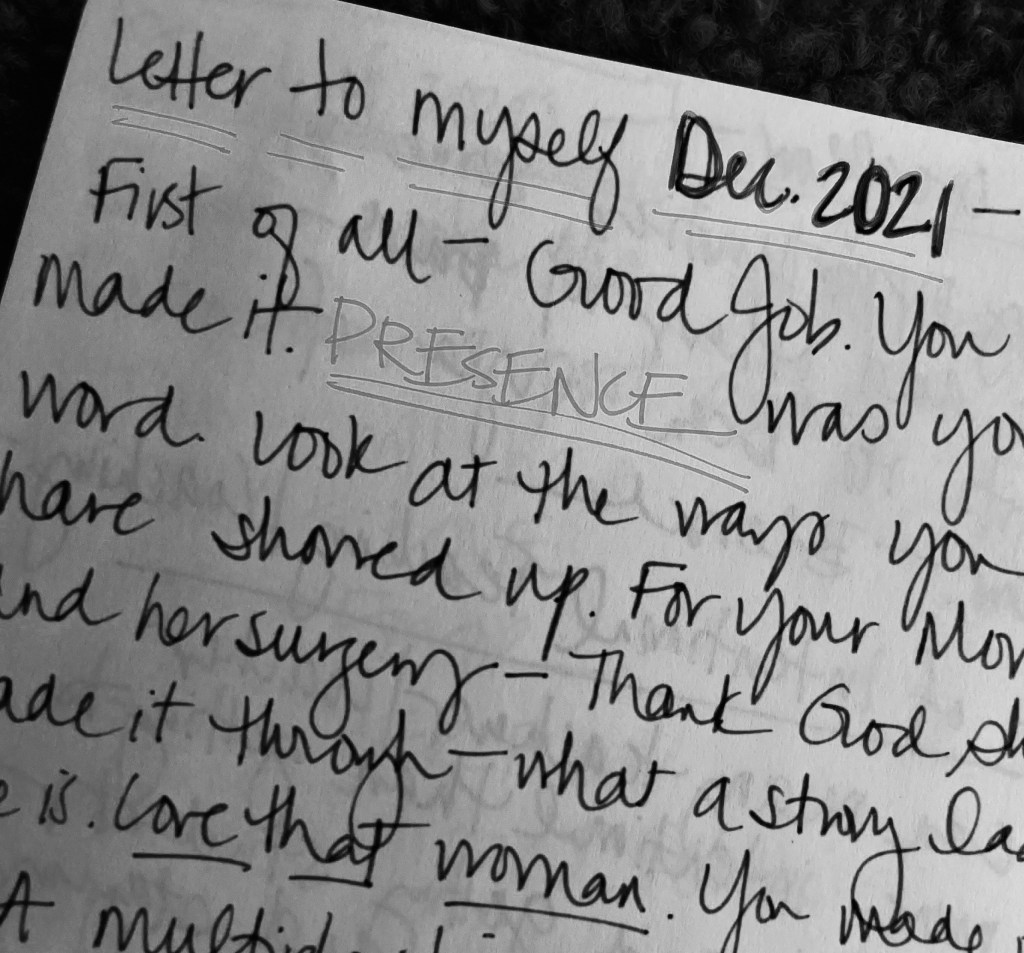 Letter to myself Dec. 2021 -
First of all - Good Job. You
made it. PRESENCE was yo
word. Look at the ways you
have showed up. For your Mom
and her surgery - Thank God sh
ade it through - what a strong la
e is. Love that woman. You made
A